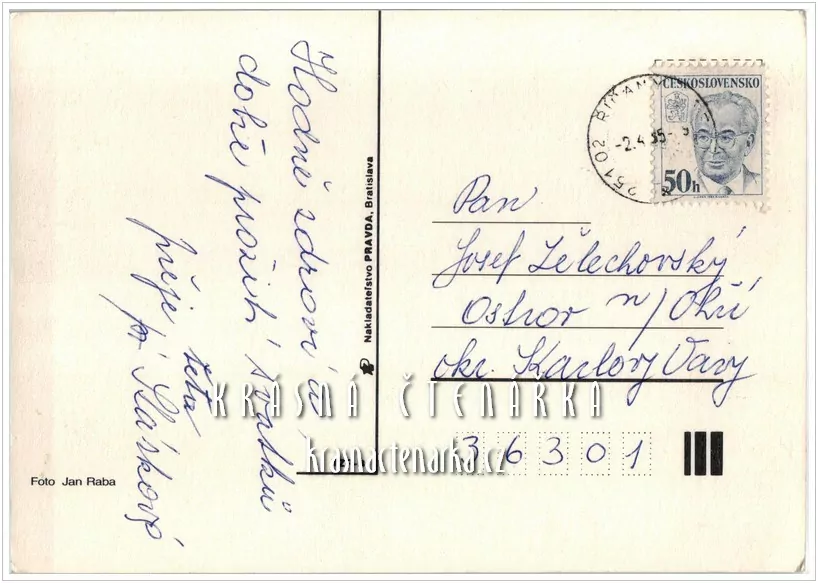 Hodně zdraví a
dobré prožití svátků
přeje teta
Foto Jan Raba
Nakladateľstvo PRAVDA, Bratislava
ČESKOSLOVENSKO
50h
25102 ŘÍČANY
-2.4.85-
Pan
Josef Želechovský
Ostrov n/Ohří
okr. Karlovy Vary
36301
KRÁSNÁ ČTENÁŘKA
krasnactenarka.cz